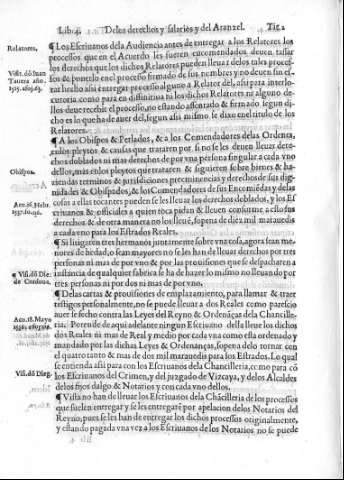 Libro 4. De los derechos y salarios y del Aranzel. Tit. 2
Relatores.
¶ Los Escriuanos dela Audiencia antes de entregar a los Relatores los
processos que en el Acuerdo les fueren encomendados deuen tassar
los derechos que los dichos Relatores pueden lleuar delos tales proces-
sos & ponerlo en el processo firmado de sus nombres y no deuen sin a-
uer hecho assi entregar processo alguno a Relator dél, assi para interlo-
cutoria como para en definitiua ni los dichos Relatores ni alguno de-
llos deue recebir el processo, no estando assentado & firmado segun di-
cho es lo que ha de auer dél, segun assi mismo se dixo enel titulo de los
Relatores.
Obispos.
¶ A los Obispos & Perlados, & a los Comendadores delas Ordenes,
enlos pleytos & causas que trataren por si no se les deuen lleuar dere-
chos doblados ni mas derechos de por vna persona singular a cada vno
dellos, mas enlos pleytos que trataren & siguieren sobre bienes & ha-
ziendas terminos & jurisdiciones preeminencias y derechos de sus dig-
nidades & Obispados, & los Comendadores de sus Encomiẽdas y delas
cosas a ellas tocantes pueden se les lleuar los derechos doblados, y los Es-
criuanos & officiales a quien toca pidan & lleuen conforme a esto sus
derechos & de otra manera no los lleuẽ, sopena de diez mil marauedis
a cada vno para los Estrados Reales.
¶ Si litigaren tres hermanos juntamente sobre vna cosa, agora sean me-
nores de hedad, o sean mayores no se les han de lleuar derechos por tres
personas ni mas de por vno & por las prouisiones que se despacharen a
instancia de qualquier fabrica se ha de hazer lo mismo no lleuando por
tres personas ni por dos ni mas de por vno.
¶ Vis. dõ Die.
de Cordoua.
¶ Delas cartas & prouisiones de emplazamiento, para llamar & traer
testigos personalmente, no se puede lleuar a dos Reales como parescio
auer se fecho contra las Leyes del Reyno & Ordenãças dela Chancille-
ria. Poren de de aqui adelante ningun Escriuano delta lleue los dichos
dos Reales ni mas de Real y medio por cada vna como esta ordenado y
mandado por las dichas Leyes & Ordenanças, sopena delo tornar con
el quatro tanto & mas de dos mil marauedis para los Estrados. Lo qual
se entienda assi para con los Escriuanos dela Chancilleria, como para cõ
los Escriuanos del Crimen, y del juzgado de Vizcaya, y delos Alcaldes
delos hijos dalgo & Notarios y con cada vno dellos.
Vis. dõ Dieg.
¶ Vista no han de lleuar los Escriuanos dela Chãcilleria de los processos
que suelen entregar y se les entregarẽ por apelacion delos Notarios del
Reyno, pues se les han de entregar los dichos processos originalmente,
y estando pagada vna vez a los Escriuanos de los Notarios no se puede